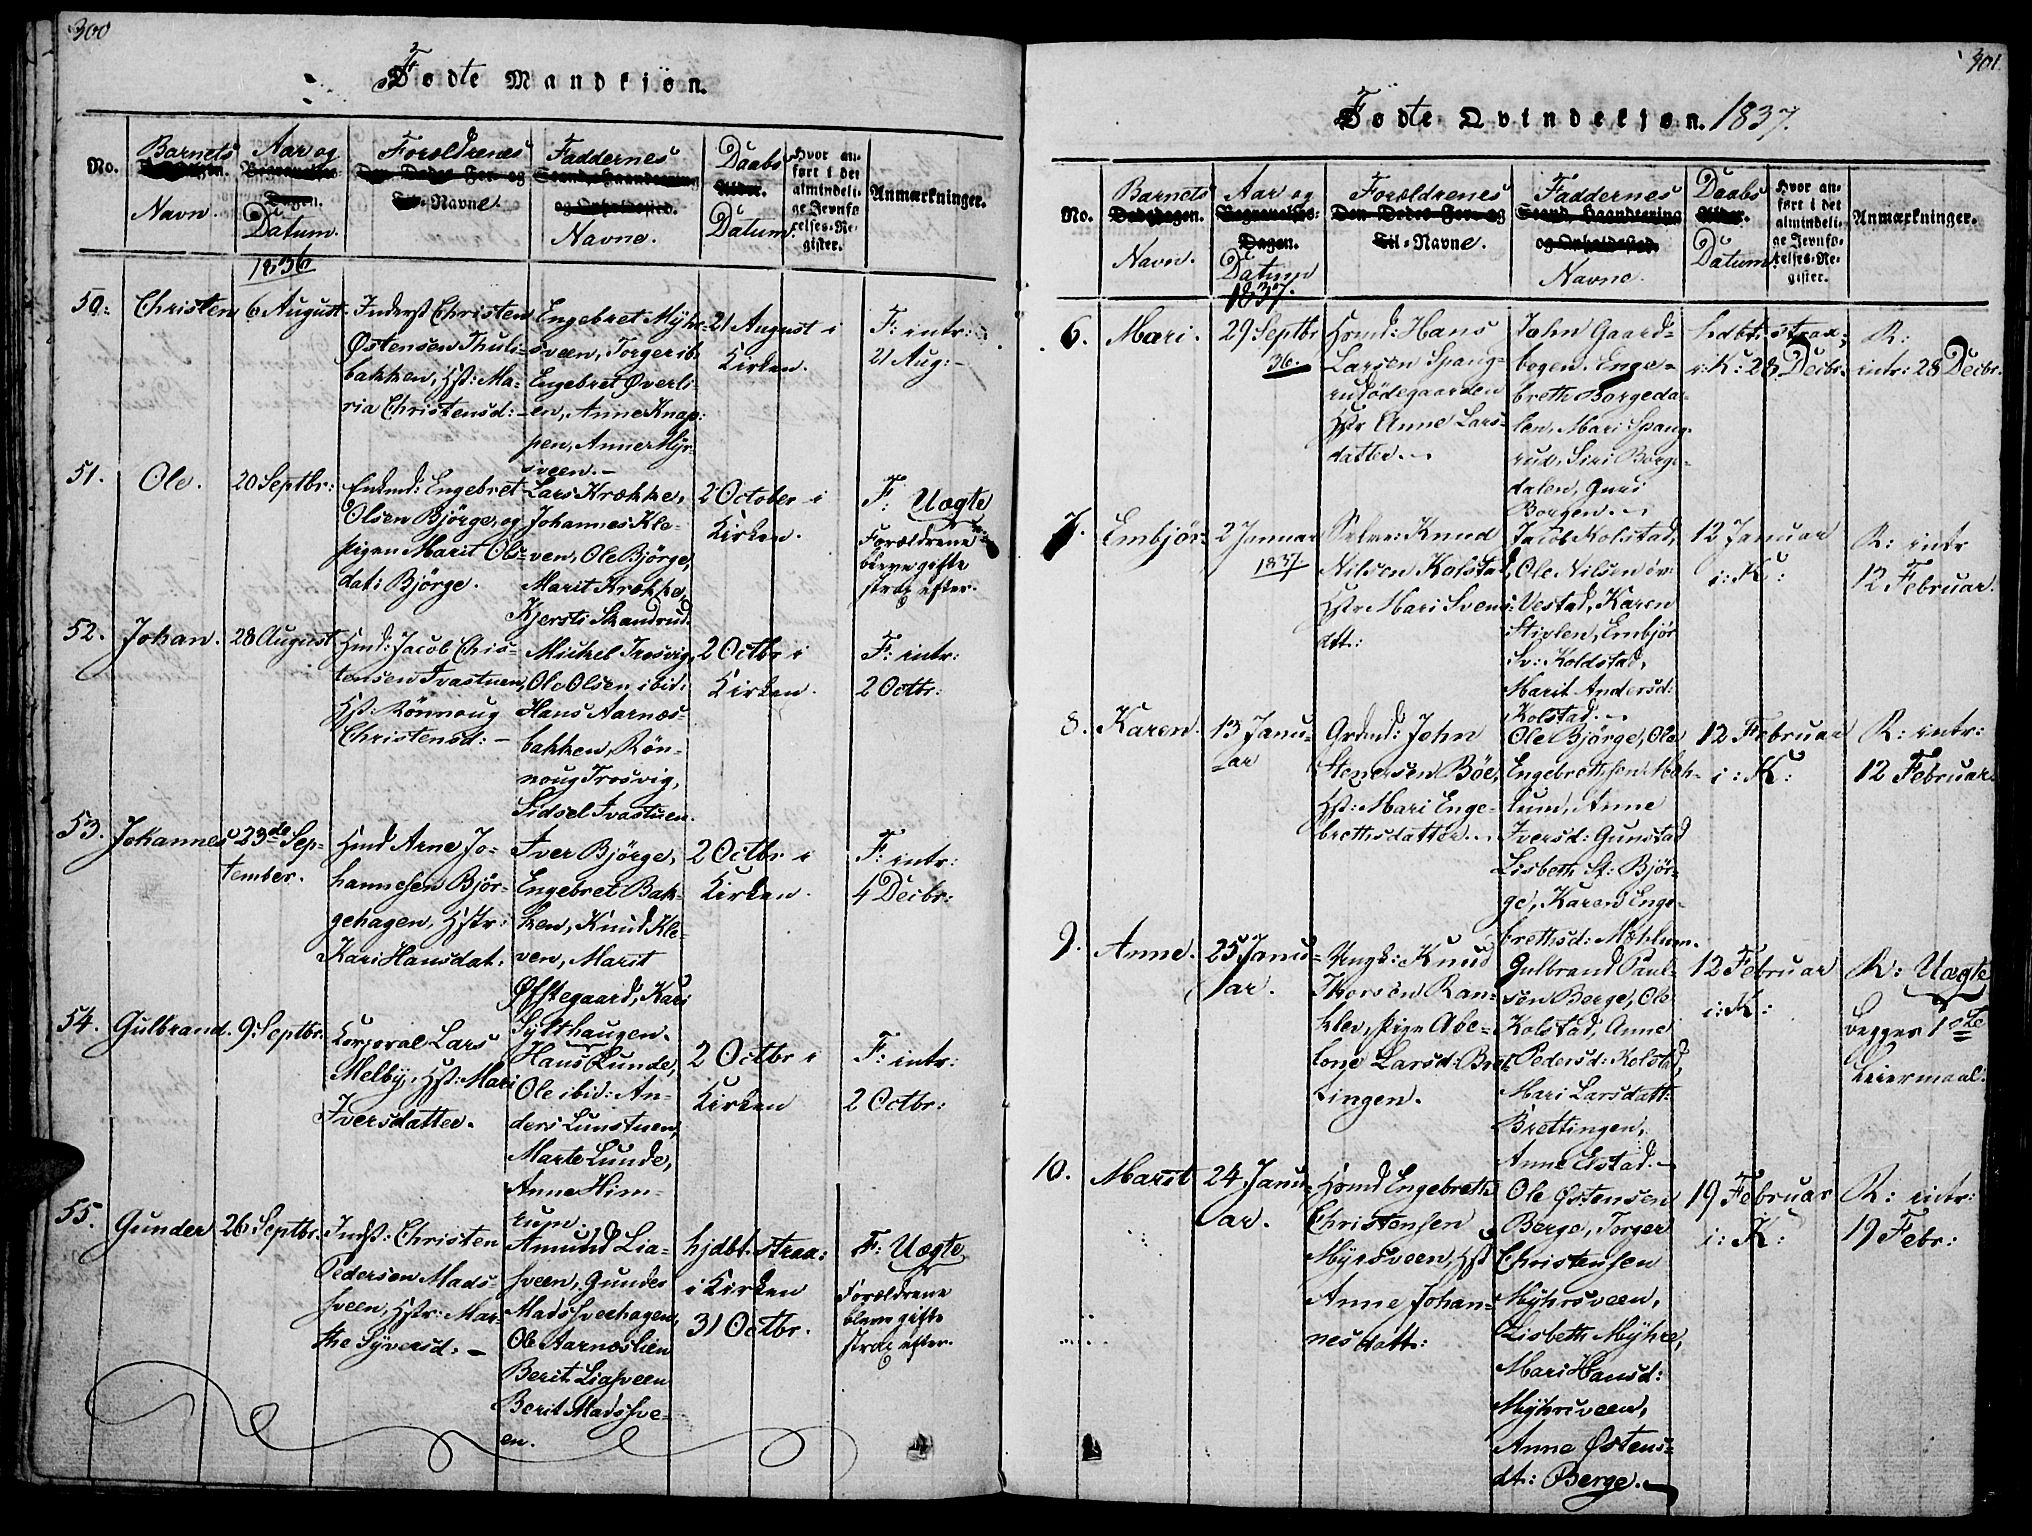 300
Fødte Mandkjøn.
No.
Barnets
Navn.
Aar og
Datum.
Forældrenes
Til-Navne.
Faddernes
Navne.
Daabs
Datum.
Hvor an-
ført i det
almindeli-
ge Jevnfø-
relses-Re-
gister.
Anmærkninger.
1836
50. Christen
6 August
Inderst Christen
Østensen Thuli-
bakken, Hst: Ma-
ria Christensd:
Engebret Myhr-
sveen, Torger ib.
Engebret Øverli-
en, Anne Knap-
pen, Anne Myr-
sveen.
21 August i
Kirken.
F: intr:
21 Aug:
51. Ole.
20 Septbr:
Enkmd: Engebret
Olsen Bjørge, og
pigen Marit Ols-
dat: Bjørge.
Lars Krække,
Johannes Kle-
ven, Ole Bjørge,
Marit Krække,
Kjersti Skandrud.
2 October i
Kirken.
F: Uægte
Forældrene
bleve gifte
strax efter.
52. Johan.
28 August
Hmd: Jacob Chris-
tensen Ivastuen,
Hst: Rönnoug
Christensd:
Mickel Trosvig,
Ole Olsen ibid:
Hans Aarnæs-
bakken, Rön-
noug Trosvig,
Sidsel Ivastuen.
2 Octbr i
Kirken.
F: intr:
2 Octbr:
53. Johannes
23de Sep-
tember.
Hmd Arne Jo-
hannesen Bjør-
gehagen, Hstr:
Kari Hansdat:
Iver Bjørge,
Engebret Bak-
ken, Knud Kle-
ven, Marit
Øfstegaard, Kari
Sylthaugen.
2 Octbr i
Kirken.
F: intr:
4 Decbr:
54. Gulbrand.
9 Septbr.
Korporal Lars
Melby, Hst: Mari
Iversdatter.
Hans Lunde,
Ole ibid: An-
ders Lunstuen,
Marte Lunde,
Anne Him-
rum.
2 Octbr i
Kirken
F: intr:
2 Octbr:
55. Gunder
26 Septbr.
Indst: Christen
Pedersen Mads-
sveen, Hstr: Mar-
the Syversd:
Amund Lia-
sveen, Gunder
Madssveehagen,
Ole Aarnæslien
Berit Liasveen
Berit Madssve-
en.
hjdbt. strax:
i Kirken
31 Octbr.
F: Uægte
Forældrene
bleve gifte
strax efter.
301
Fødte Qvindekjøn. 1837.
No.
Barnets
Navn.
Aar og
Datum
Forældrenes
Til-Navne.
Faddernes
Navne.
Daabs
Datum.
Hvor an-
ført i det
almindeli-
ge Jevnfø-
relses-Re-
gister.
Anmærkninger.
1837.
6. Mari.
29 Septbr
36.
Hsmd: Hans
Larsen Spang-
rudødegaarden
Hstr Anne Lars-
datter.
John Gaard-
bogen. Enge-
breth Borgeda-
len, Mari Spang-
rud, Siri Borge-
dalen, Guri
Borgen.
hdbt: strax;
i: K: 28 Decbr.
R:
intr: 28 Decbr.
7. Embjør
2 Januar
1837
Knud
Nilsen Kolstad,
Hstr Mari Svens-
dtt:
Jacob Kolstad,
Ole Nilsen
Vestad, Karen
Stivlen, Embjør
Sv: Koldstad,
Marit Andersd:
Kolstad.
12 Januar
i: K:
R: intr
12 Februar.
8. Karen.
13 Janu-
ar
Grdmd: John
Stenersen Böe,
Hst: Mari Enge-
brethsdatter.
Ole Bjørge, Ole
Engebrethsen Mæh-
lum, Anne
Iversd: Gunstad
Lisbeth St: Bjør-
ge, Karen Enge-
brethsd: Mæhlum.
12 Februar
i: K:
R: intr:
12 Februar
9. Anne.
25 Janu-
ar.
Ungk: Knud
Thorsen Ran-
klev, pige Abe-
lone Larsd: Bret-
tingen.
Gulbrand Paul-
sen Berge, Ole
Kolstad, Anne
Pedersd: Kolstad,
Mari Larsdatt:
Brettingen,
Anne Elstad.
12 Februar
i: K:
R: Uægte
begges 1ste
Leiermaal.
10. Marit
24 Janu-
ar.
Hsmd Engebreth
Christensen
Myrsveen, Hst
Anne Johan-
nesdatt:
Ole Østensen
Berge, Torger
Christensen
Myhrsveen,
Lisbeth Myhre,
Mari Hansd:
Myhrsveen,
Anne Østens-
dt: Berge.
19 Februar
i: K:
R: intr:
19 Febr: